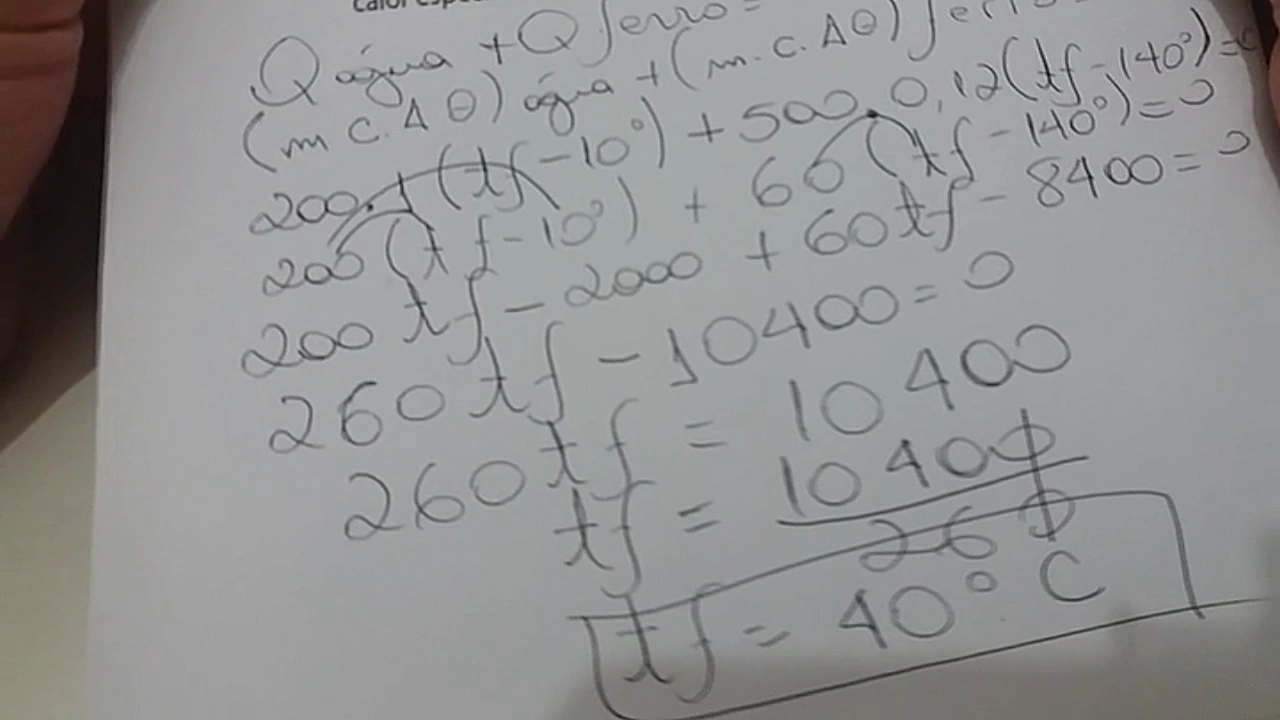 Q água + Q ferro =
(m c. Δθ) água + (m. c. Δθ) ferro
200. 1 (tf - 10°) + 500. 0,12 (tf - 140°) = 0
200 (tf - 10°) + 60 (tf - 140°) = 0
200 tf - 2000 + 60 tf - 8400 = 0
260 tf - 10400 = 0
260 tf = 10400
tf = 10400
260
tf = 40° C